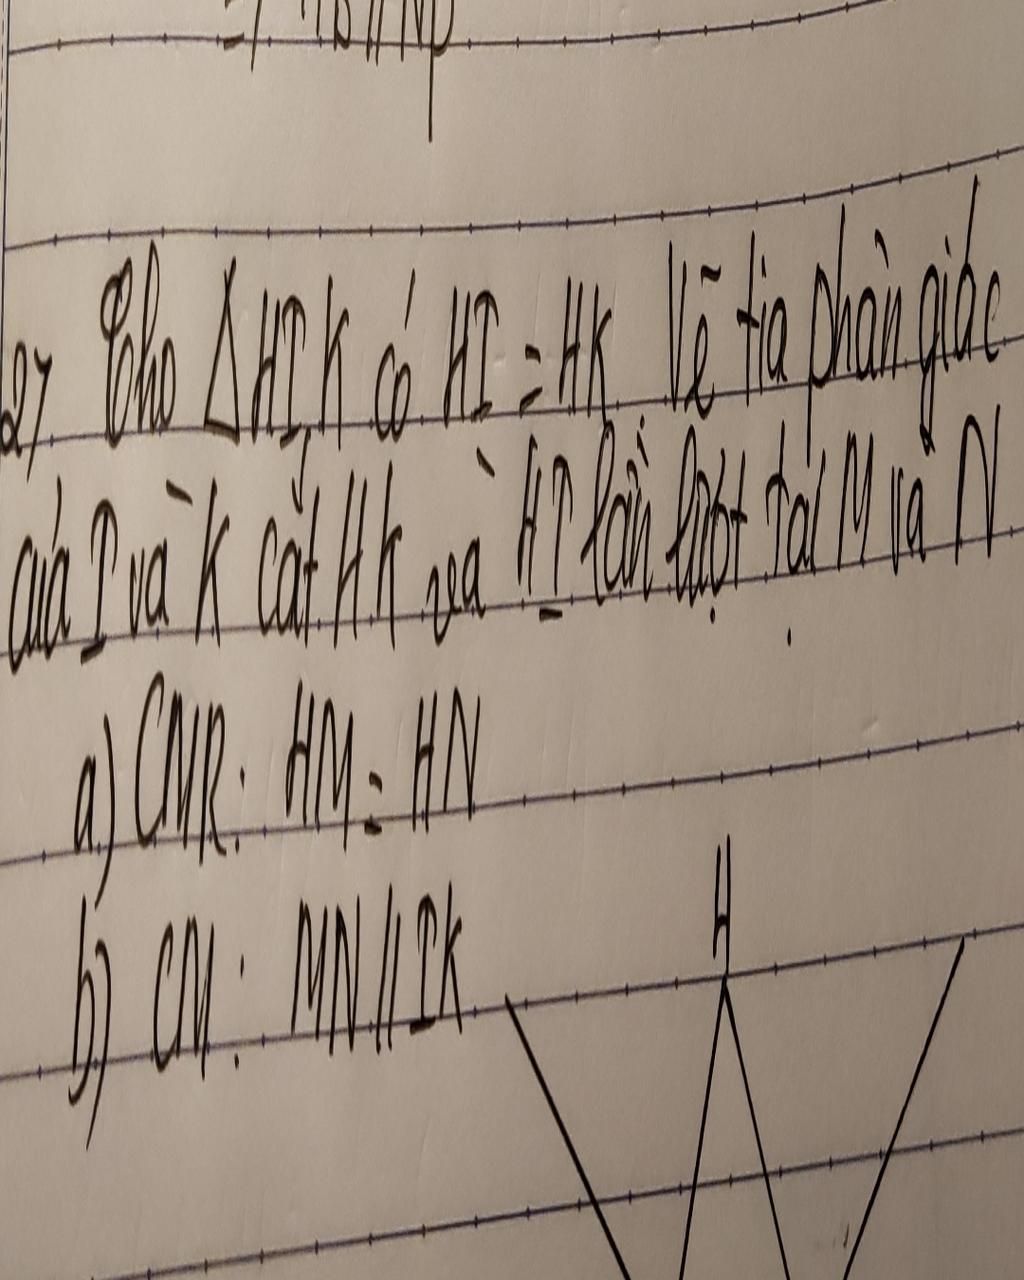 => // NP
2) Cho Δ HIK có HI = HK Vẽ tia phân giác
của I và K cắt HK và HI lần lượt tại M và N
a) CMR: HM = HN
b) CM: MN // IK
H